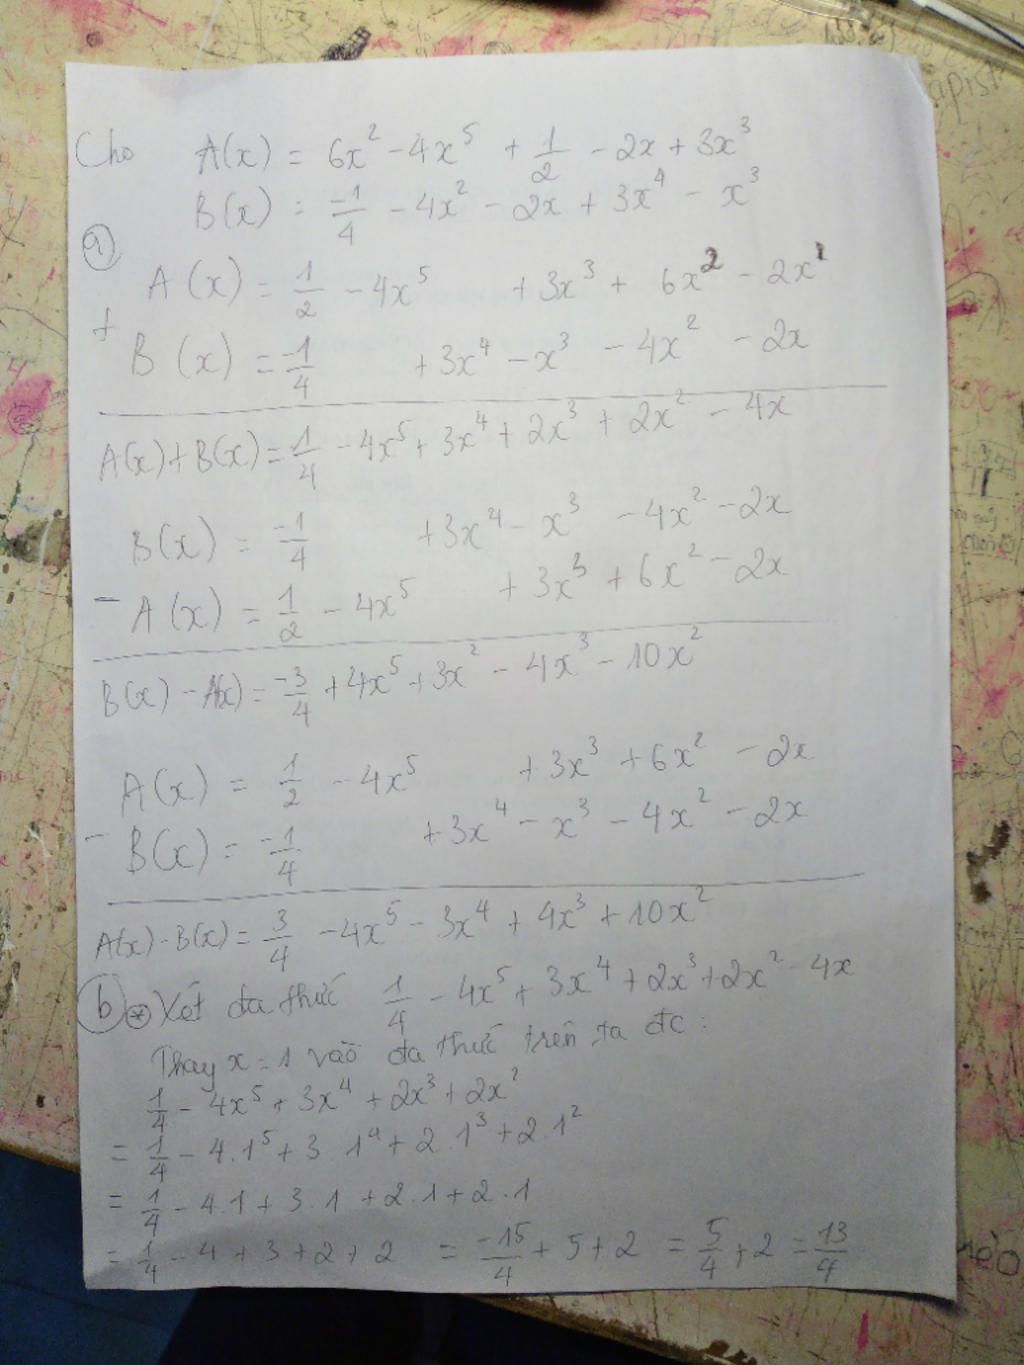 Cho A(x) = 6x² - 4x⁵ + 1/2 - 2x + 3x³
B(x) = -1/4 - 4x² - 2x + 3x⁴ - x³
a)
A(x) = 1/2 - 4x⁵ + 3x³ + 6x² - 2x¹
+
B(x) = -1/4 + 3x⁴ - x³ - 4x² - 2x
A(x) + B(x) = 1/4 - 4x⁵ + 3x⁴ + 2x³ + 2x² - 4x
B(x) = -1/4 + 3x⁴ - x³ - 4x² - 2x
- A(x) = 1/2 - 4x⁵ + 3x³ + 6x² - 2x
B(x) - A(x) = -3/4 + 4x⁵ + 3x² - 4x³ - 10x²
A(x) = 1/2 - 4x⁵ + 3x³ + 6x² - 2x
- B(x) = -1/4 + 3x⁴ - x³ - 4x² - 2x
A(x) - B(x) = 3/4 - 4x⁵ - 3x⁴ + 4x³ + 10x²
b) * Xét đa thức 1/4 - 4x⁵ + 3x⁴ + 2x³ + 2x² - 4x
Thay x = 1 vào đa thức trên ta đc :
1/4 - 4x⁵ + 3x⁴ + 2x³ + 2x²
= 1/4 - 4.1⁵ + 3.1⁴ + 2.1³ + 2.1²
= 1/4 - 4.1 + 3.1 + 2.1 + 2.1
= 1/4 - 4 + 3 + 2 + 2 = -15/4 + 5 + 2 = 5/4 + 2 = 13/4